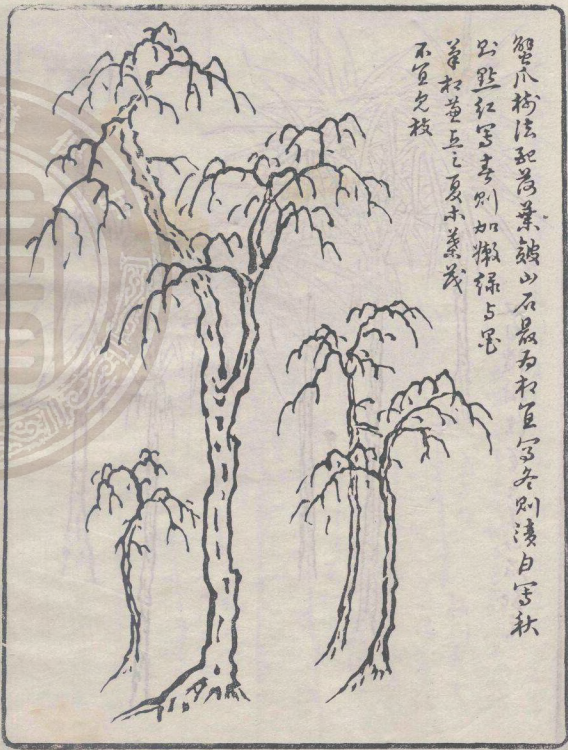 蟹爪樹法配荷葉皴山石最為相宜寫冬則漬白寫秋
則點紅寫春則加嫩綠与墨
筆相兼点之夏木葉茂
不宜允枝